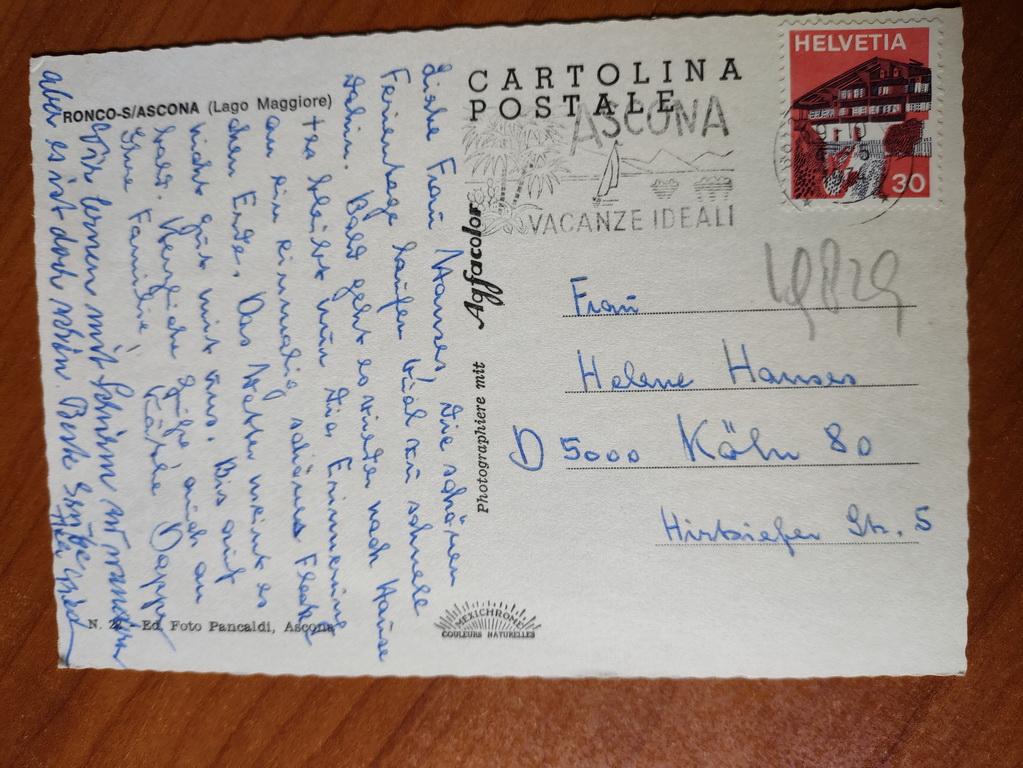 RONCO-S/ASCONA (Lago Maggiore)
CARTOLINA
POSTALE
ASCONA
VACANZE IDEALI
HELVETIA
30
Liebe Frau Hanses, die schönen
Ferientage laufen viel zu schnell
dahin. Bald geht es wieder nach Hause
es bleibt nur die Erinnerung
an ein einmalig schönes Fleck-
chen Erde. Das Wetter meint es
nicht gut mit uns. Bis auf
bald. Herzliche Grüße auch an
Ihre Familie, Käthe
Wir lernen mit Schirm zu wandern
aber es ist doch schön. Beste Grüße
Photographiere mit Agfacolor
Frau
Helene Hanses
D 5000 Köln 80
Hirtsiefer Str. 5
Ed. Foto Pancaldi, Ascona
MEXICHROME
COULEURS NATURELLES